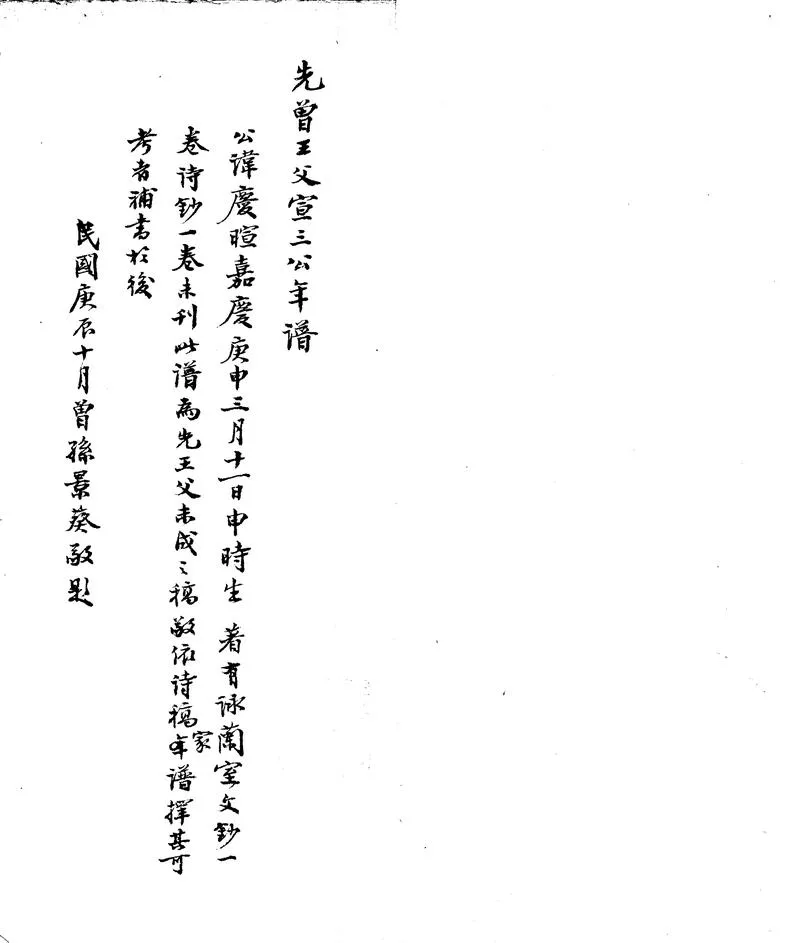 先曾王父宣三公年譜
公諱慶暄嘉慶庚申三月十一日申時生 著有詠蘭室文鈔一
卷诗鈔一卷未刊此譜為先王父未成之稿敬依诗稿家年譜擇其可
考者補書於後
民國庚辰十月曾孫景葵敬題